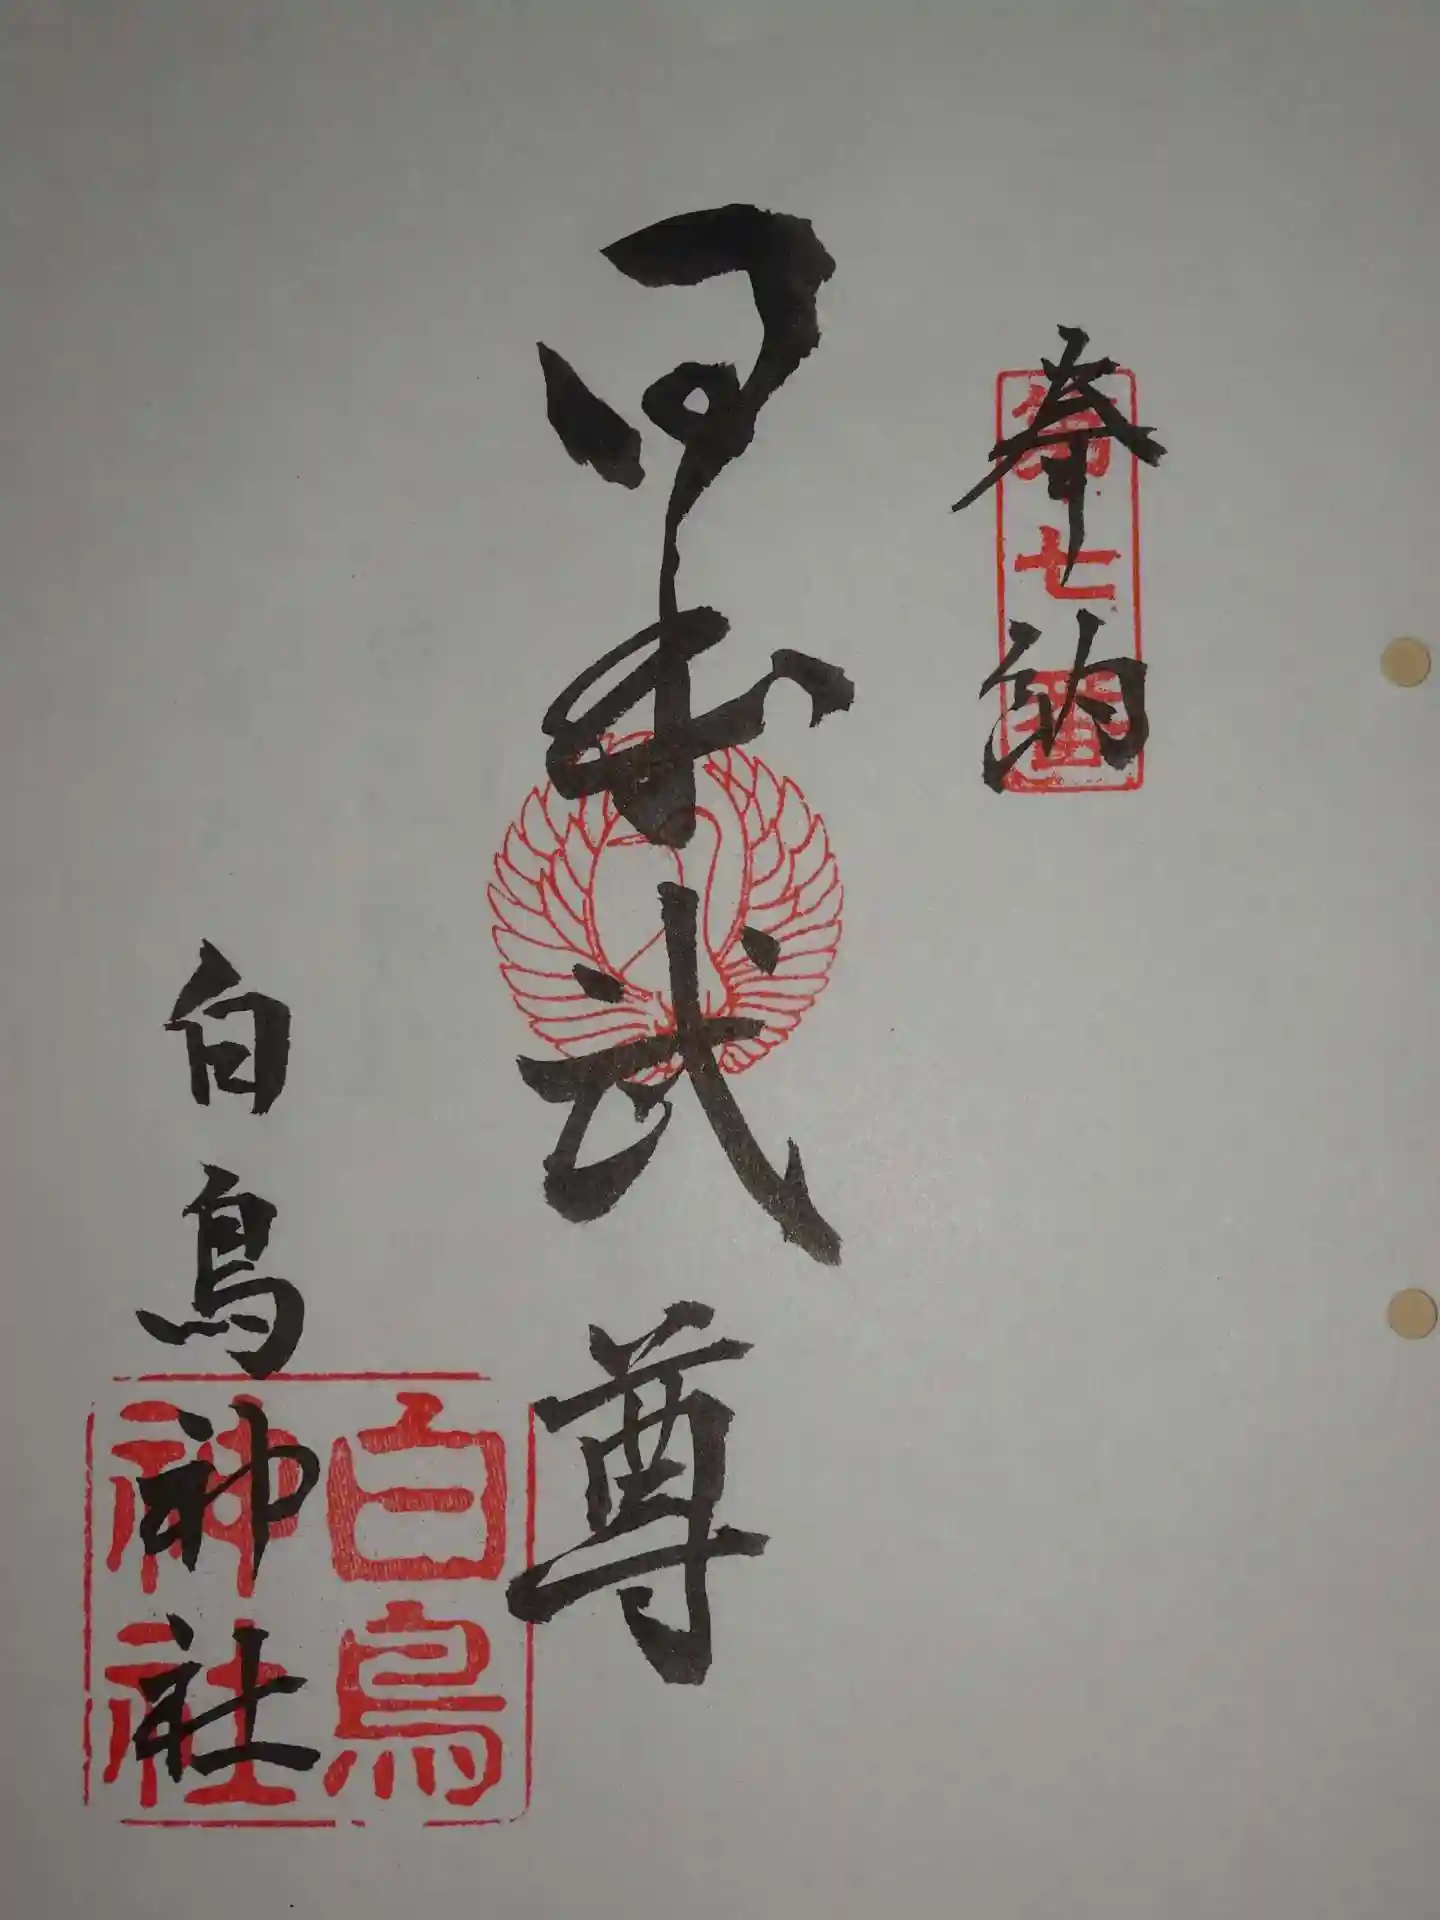 奉納
第七番
日本武尊
白鳥神社
白鳥
神社